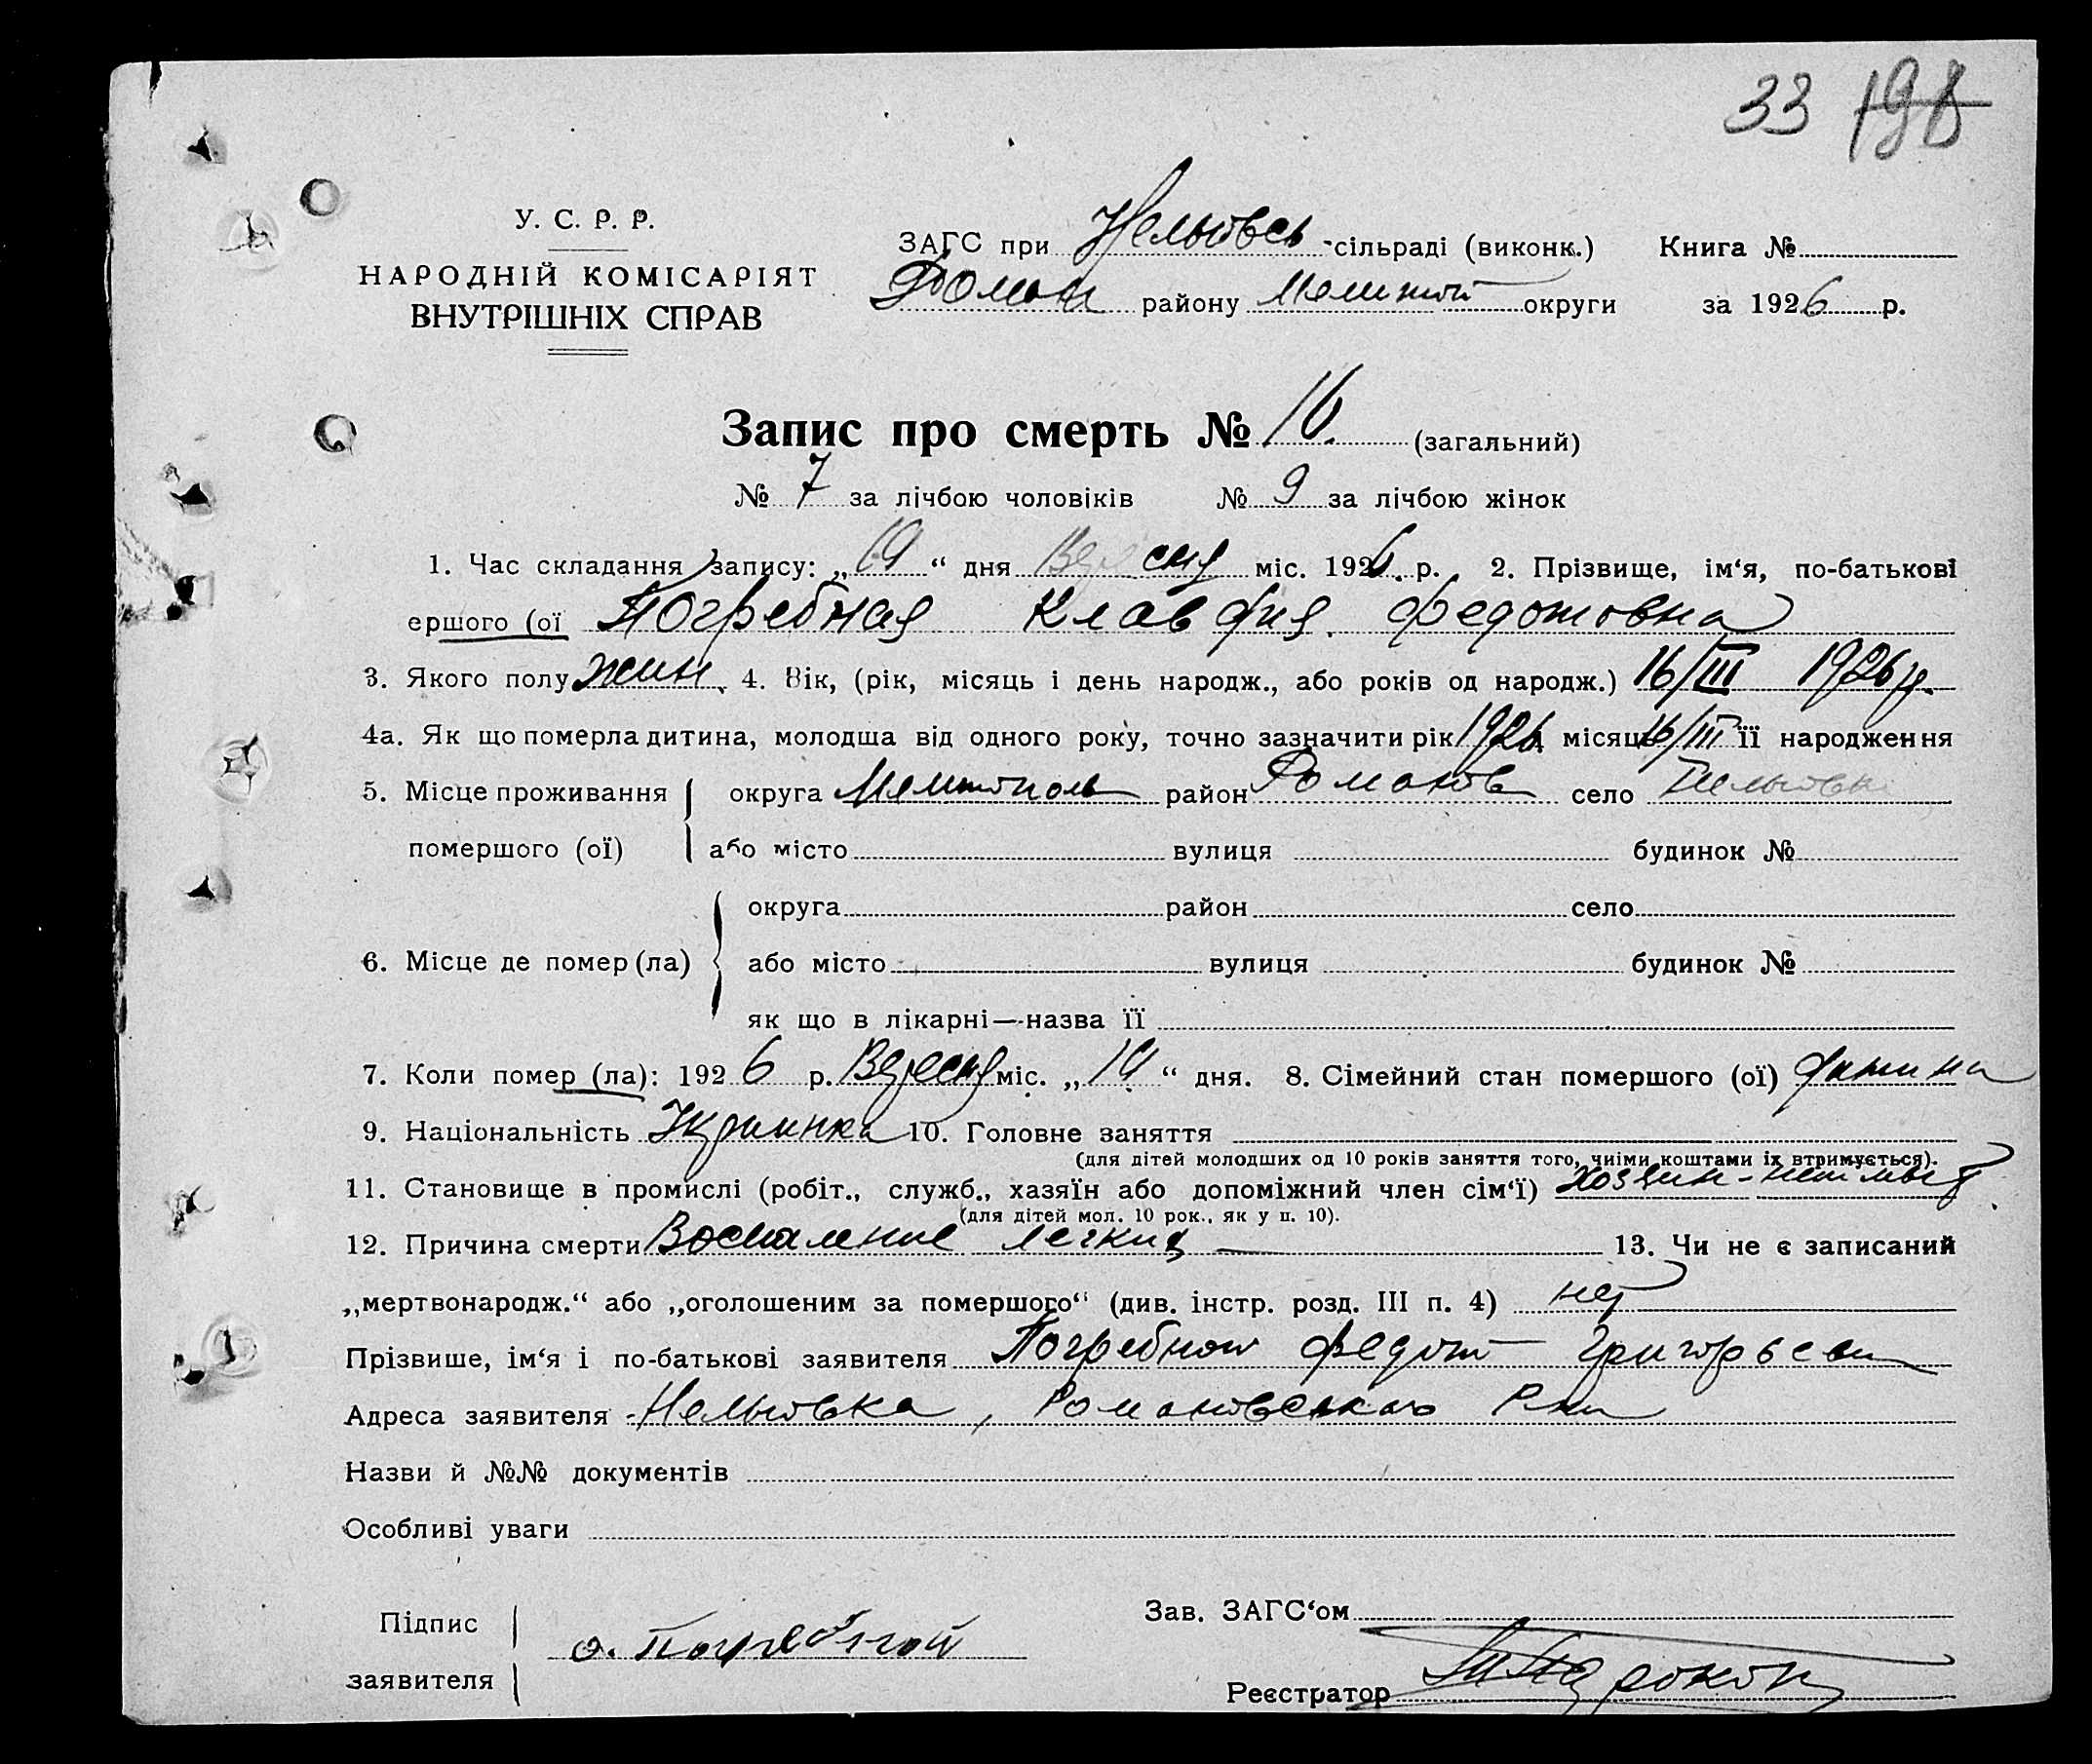 33 198
У. С. Р. Р.
НАРОДНІЙ КОМІСАРІЯТ
ВНУТРІШНІХ СПРАВ
ЗАГС при Нельговсь -сільраді (виконк.) Книга №
Роман району Мелитоп округи за 1926 р.
Запис про смерть № 16. (загальний)
№ 7 за лічбою чоловіків № 9 за лічбою жінок
1. Час складання запису: „19“ дня Вересня міс. 1926. р. 2. Прізвище, ім‘я, по-батькові
ершого (ої Погребная Клавдия Федотовна
3. Якого полу жин. 4. Вік, (рік, місяць і день народж., або років од народж.) 16/III 1926 р.
4а. Як що померла дитина, молодша від одного року, точно зазначити рік 1926 місяць 16/III її народження
5. Місце проживання округа Мелитополь район Романов село Нельговка
помершого (ої) або місто вулиця будинок №
округа район село
6. Місце де помер (ла) або місто вулиця будинок №
як що в лікарні—назва її
7. Коли помер (ла): 1926 р. Вересня міс. „19“ дня. 8. Сімейний стан помершого (ої) дитина
9. Національність Украинка 10. Головне заняття
(для дітей молодших од 10 років заняття того, чиїми коштами їх втримується).
11. Становище в промислі (робіт., служб., хазяїн або допоміжний член сім‘ї) хозяин
(для дітей мол. 10 рок., як у п. 10).
12. Причина смерти Воспаление легких 13. Чи не є записаний
„мертвонародж.“ або „оголошеним за помершого“ (див. інстр. розд. III п. 4) нет
Прізвище, ім‘я і по-батькові заявителя Погребной Федот Григорьевич
Адреса заявителя Нельговка, Романовського Р-на
Назви й №№ документів
Особливі уваги
Підпис
заявителя
Ф. Погребной
Зав. ЗАГС‘ом
Реєстратор